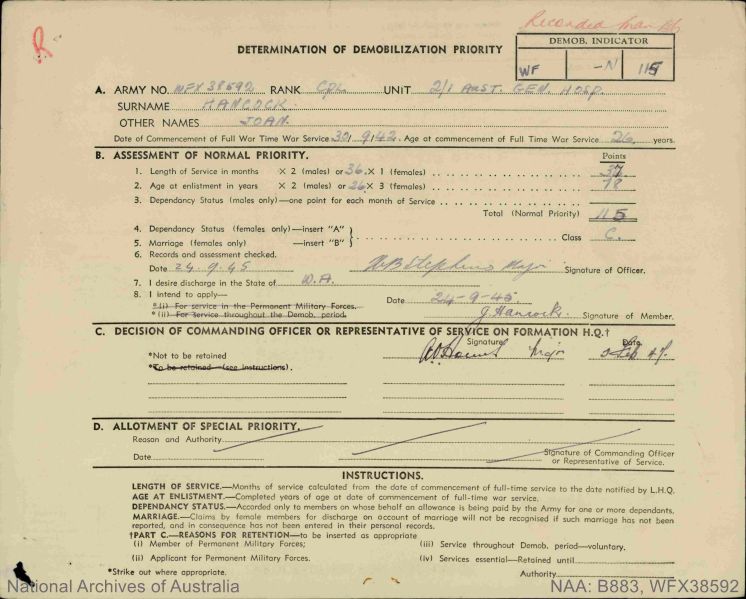 R
Recorded
DETERMINATION OF DEMOBILIZATION PRIORITY
DEMOB. INDICATOR
WF -N 115
A. ARMY NO. WFX 38592 RANK CPL UNIT 2/1 AUST. GEN. HOSP.
SURNAME HANCOCK.
OTHER NAMES JOAN.
Date of Commencement of Full War Time War Service 30/9/42. Age at commencement of Full Time War Service 26 years.
B. ASSESSMENT OF NORMAL PRIORITY. Points
1. Length of Service in months × 2 (males) or 36 × 1 (females) 37
2. Age at enlistment in years × 2 (males) or 26 × 3 (females) 78
3. Dependancy Status (males only)—one point for each month of Service
Total (Normal Priority) 115
4. Dependancy Status (females only) —insert "A"
5. Marriage (females only) —insert "B" } Class C.
6. Records and assessment checked.
Date 24.9.45 Stephens Major Signature of Officer.
7. I desire discharge in the State of W.A.
8. I intend to apply— Date 24-9-45
*(i) For service in the Permanent Military Forces.
*(ii) For Service throughout the Demob. period. J. Hancock. Signature of Member.
C. DECISION OF COMMANDING OFFICER OR REPRESENTATIVE OF SERVICE ON FORMATION H.Q.†
Signature Date
*Not to be retained Major
*To be retained (see instructions).
D. ALLOTMENT OF SPECIAL PRIORITY.
Reason and Authority
Date Signature of Commanding Officer
or Representative of Service.
INSTRUCTIONS.
LENGTH OF SERVICE.—Months of service calculated from the date of commencement of full-time service to the date notified by L.H.Q.
AGE AT ENLISTMENT.—Completed years of age at date of commencement of full-time war service.
DEPENDANCY STATUS.—Accorded only to members on whose behalf an allowance is being paid by the Army for one or more dependants.
MARRIAGE.—Claims by female members for discharge on account of marriage will not be recognised if such marriage has not been
reported, and in consequence has not been entered in their personal records.
†PART C.—REASONS FOR RETENTION—to be inserted as appropriate
(i) Member of Permanent Military Forces; (iii) Service throughout Demob. period—voluntary.
(ii) Applicant for Permanent Military Forces. (iv) Services essential—Retained until
*Strike out where appropriate. Authority
National Archives of Australia NAA: B883, WFX38592